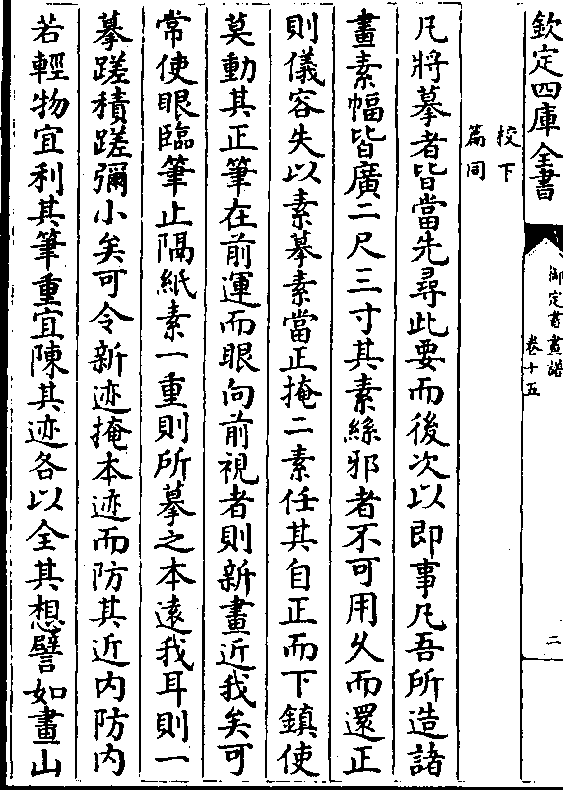 欽定四庫全書
御定書畫譜
卷十五
二
校下
篇同
凡將摹者皆當先尋此要而後次以即事凡吾所造諸
畫素幅皆廣二尺三寸其素絲邪者不可用久而還正
則儀容失以素摹素當正掩二素任其自正而下鎮使
莫動其正筆在前運而眼向前視者則新畫近我矣可
常使眼臨筆止隔紙素一重則所摹之本遠我耳則一
摹蹉積蹉彌小矣可令新迹掩本迹而防其近内防内
若輕物宜利其筆重宜陳其迹各以全其想譬如畫山